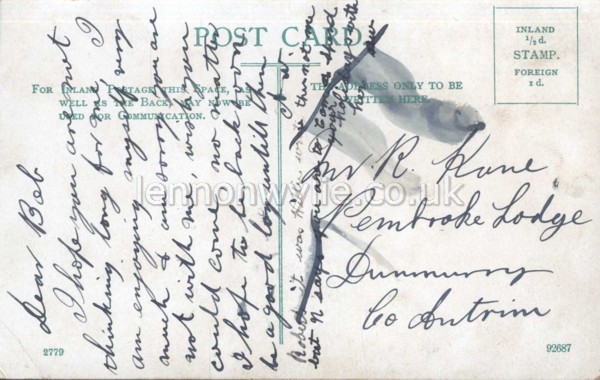 POST CARD
FOR INLAND POSTAGE THIS SPACE, AS
WELL AS THE BACK, MAY NOW BE
USED FOR COMMUNICATION.
THE ADDRESS ONLY TO BE
WRITTEN HERE.
INLAND
½d.
STAMP.
FOREIGN
1d.
Dear Bob
I hope you are not
thinking long for me, I
am enjoying myself very
much & am sorry you are
not with me, wish you
could come no matter
I hope to be back soon
be a good boy until then
it was this not you
but N says you are to
Mr R. Kane
Pembroke Lodge
Dunmurry
Co Antrim
lennonwylie.co.uk
2779
92687